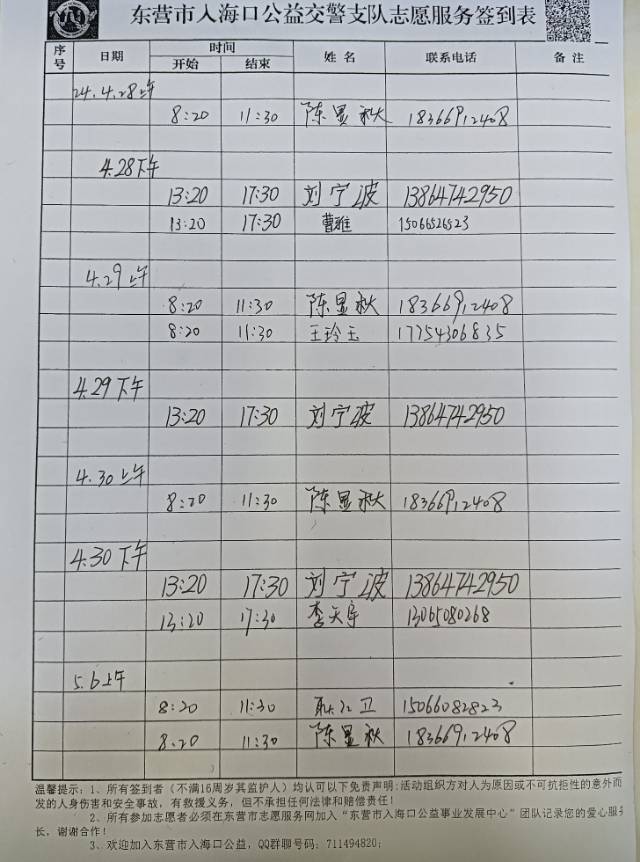 东营市入海口公益交警支队志愿服务签到表
序号 日期 时间 姓名 联系电话 备注
开始 结束
24.4.28上午
8:20 11:30 陈显秋 18366912408
4.28下午
13:20 17:30 刘宁波 13864742950
13:20 17:30 曹雅 15066526523
4.29上午
8:20 11:30 陈显秋 18366912408
8:20 11:30 王玲玉 17754306835
4.29下午
13:20 17:30 刘宁波 13864742950
4.30上午
8:20 11:30 陈显秋 18366912408
4.30下午
13:20 17:30 刘宁波 13864742950
13:20 17:30 李天宇 13065080268
5.6上午
8:20 11:30 耿江卫 15066082823
8.20 11:30 陈显秋 18366912408
温馨提示：1、所有签到者（不满16周岁其监护人）均认可以下免责声明:活动组织方对人为原因或不可抗拒性的意外而
发的人身伤害和安全事故，有救援义务，但不承担任何法律和赔偿责任！
2、所有参加志愿者必须在东营市志愿服务网加入“东营市入海口公益事业发展中心”团队记录您的爱心服务
长，谢谢合作！
3、欢迎加入东营市入海口公益，QQ群聊号码：711494820；